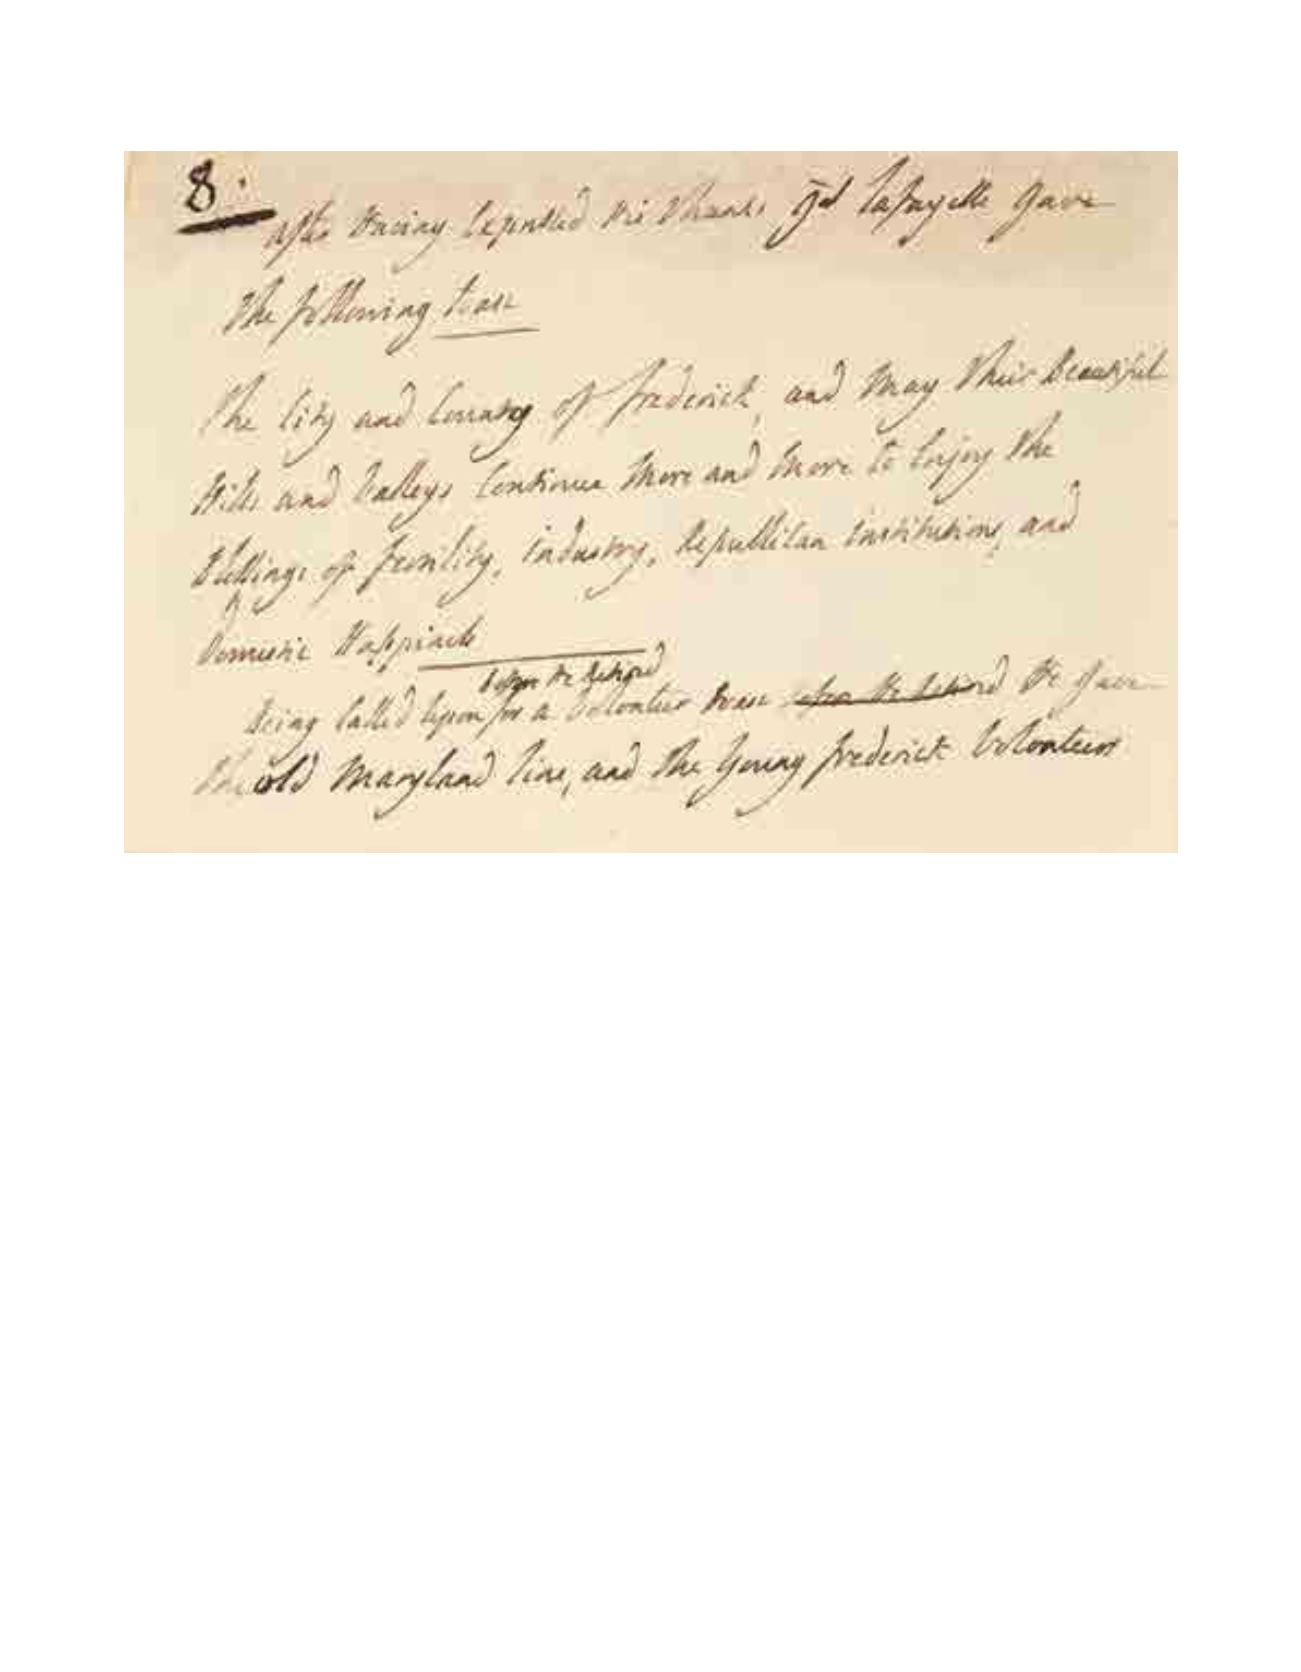 8.
after having Expressed his thanks Gel Lafayette gave
the following toast
The City and County of frederick, and may their Beautiful
Hills and Valleys Continue more and more to Enjoy the
Blessings of fertility, industry, Republican institutions, and
Domestic Happiness
before he retired
Being Called Upon for a Volonteer toast before he retired He gave
the old Maryland line, and the young frederick Volonteers